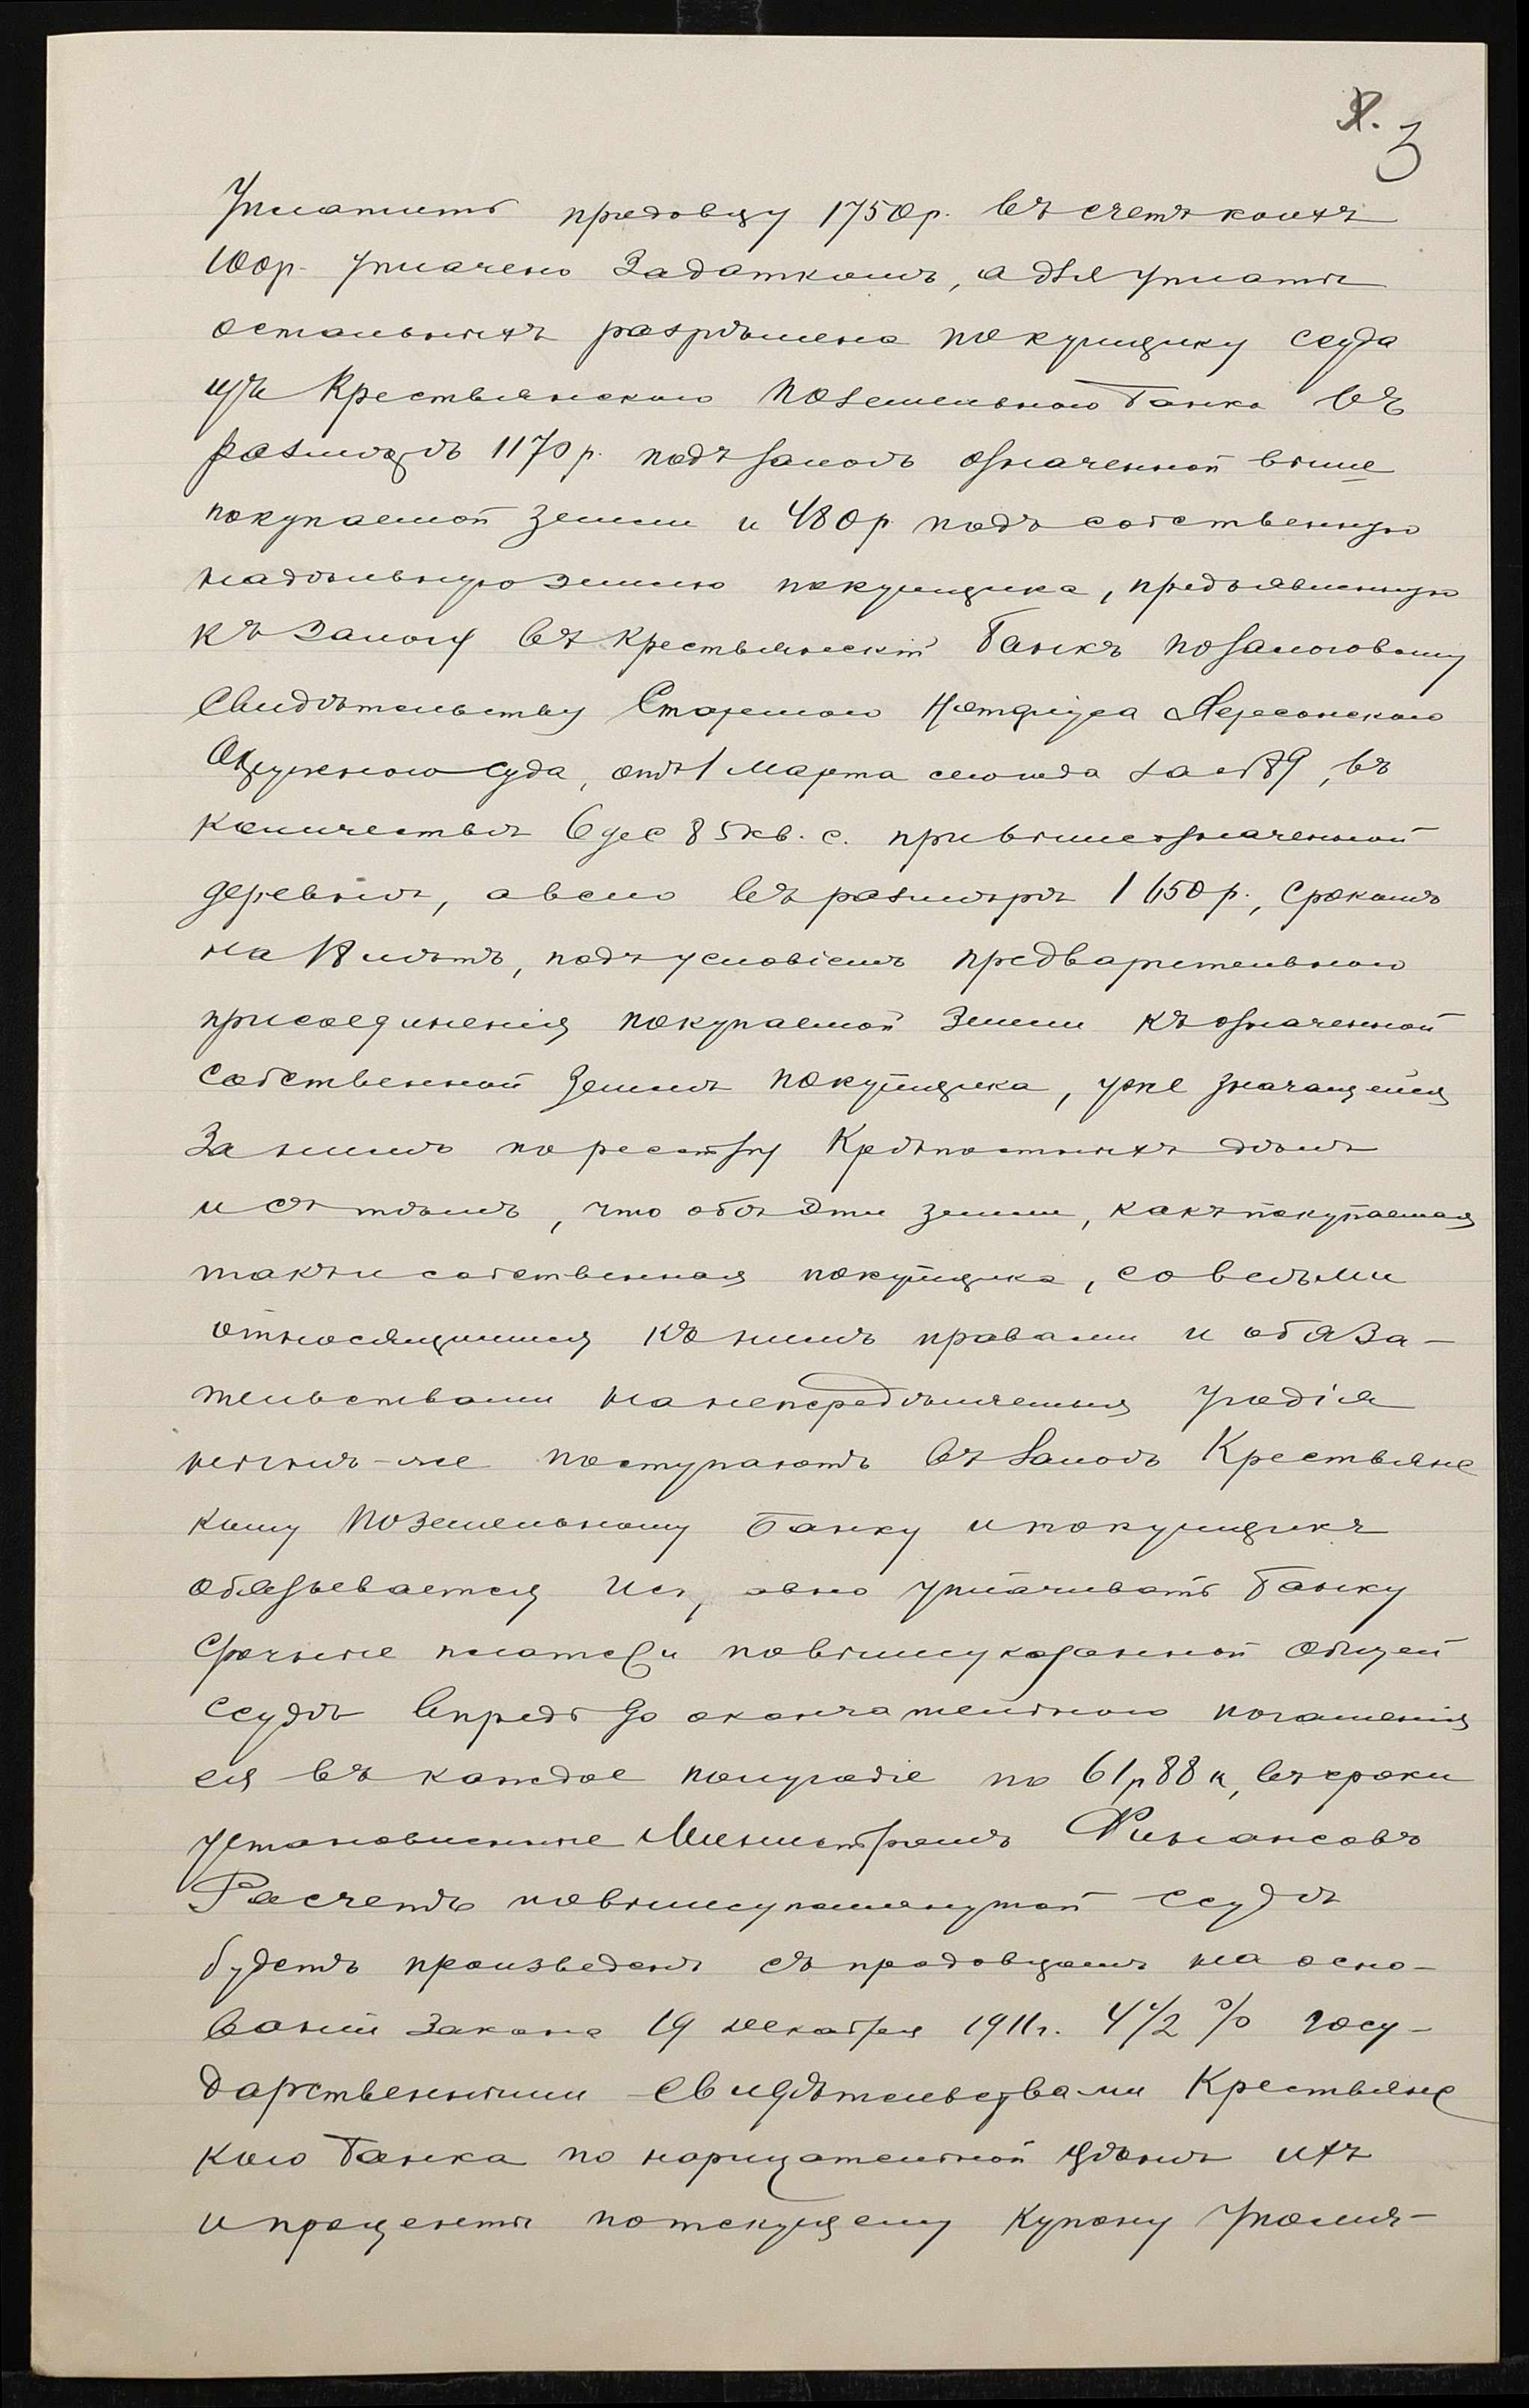 3
Уплатить продавцу 1750р. въ счетъ коихъ
100р. уплачено задаткомъ, а для уплаты
остальныхъ разрѣшена покупщику ссуда
изъ Крестьянского Поземельного Банка въ
размѣрѣ 1170 р. подъ залогъ означенной выше
покупаемой земли и 480р подъ собственную
надѣльную землю покупщика, предъявленную
къ залогу въ Крестьянскій Банкъ по залоговому
свидѣтельству Старшаго Нотаріуса Херсонскаго
Окружного Суда, отъ 1 Марта сего года за № 89, въ
количествѣ 6 дес 85 кв. с. при вышеозначенной
деревнѣ, а всего въ размѣрѣ 1650р., срокомъ
на лѣтъ, подъ условіемъ предварительного
присоединенія покупаемой земли къ означенной
собственной землѣ покупщика, уже значащейся
за нимъ по реестру Крѣпостныхъ дѣлъ
и съ тѣмъ, что обѣ эти земли, какъ покупаемая
такъ и собственная покупщика, со всѣми
относящимися къ нимъ правами и обяза-
тельствами на неопредѣленныя угодія
нынѣ-же поступаютъ въ залогъ Крестьянс
кому Поземельному Банку и покупщикъ
обязывается уплачивать Банку
срочные платежи по вышеуказанной общей
ссудѣ впредь до окончательного погашенія
ея въ каждое полугодіе по 61р 88 к, въ сроки
установленные Министромъ Финансовъ
Расчетъ по вышеупомянутой ссудѣ
будетъ произведенъ съ продавцомъ на осно-
ваніи закона 19 декабря 1911г. 4 1/2 % госу-
дарственными свидѣтельствами Крестьянс
кого Банка по нарицательной цѣнѣ ихъ
и проценты по текущему купону уполнѣ-